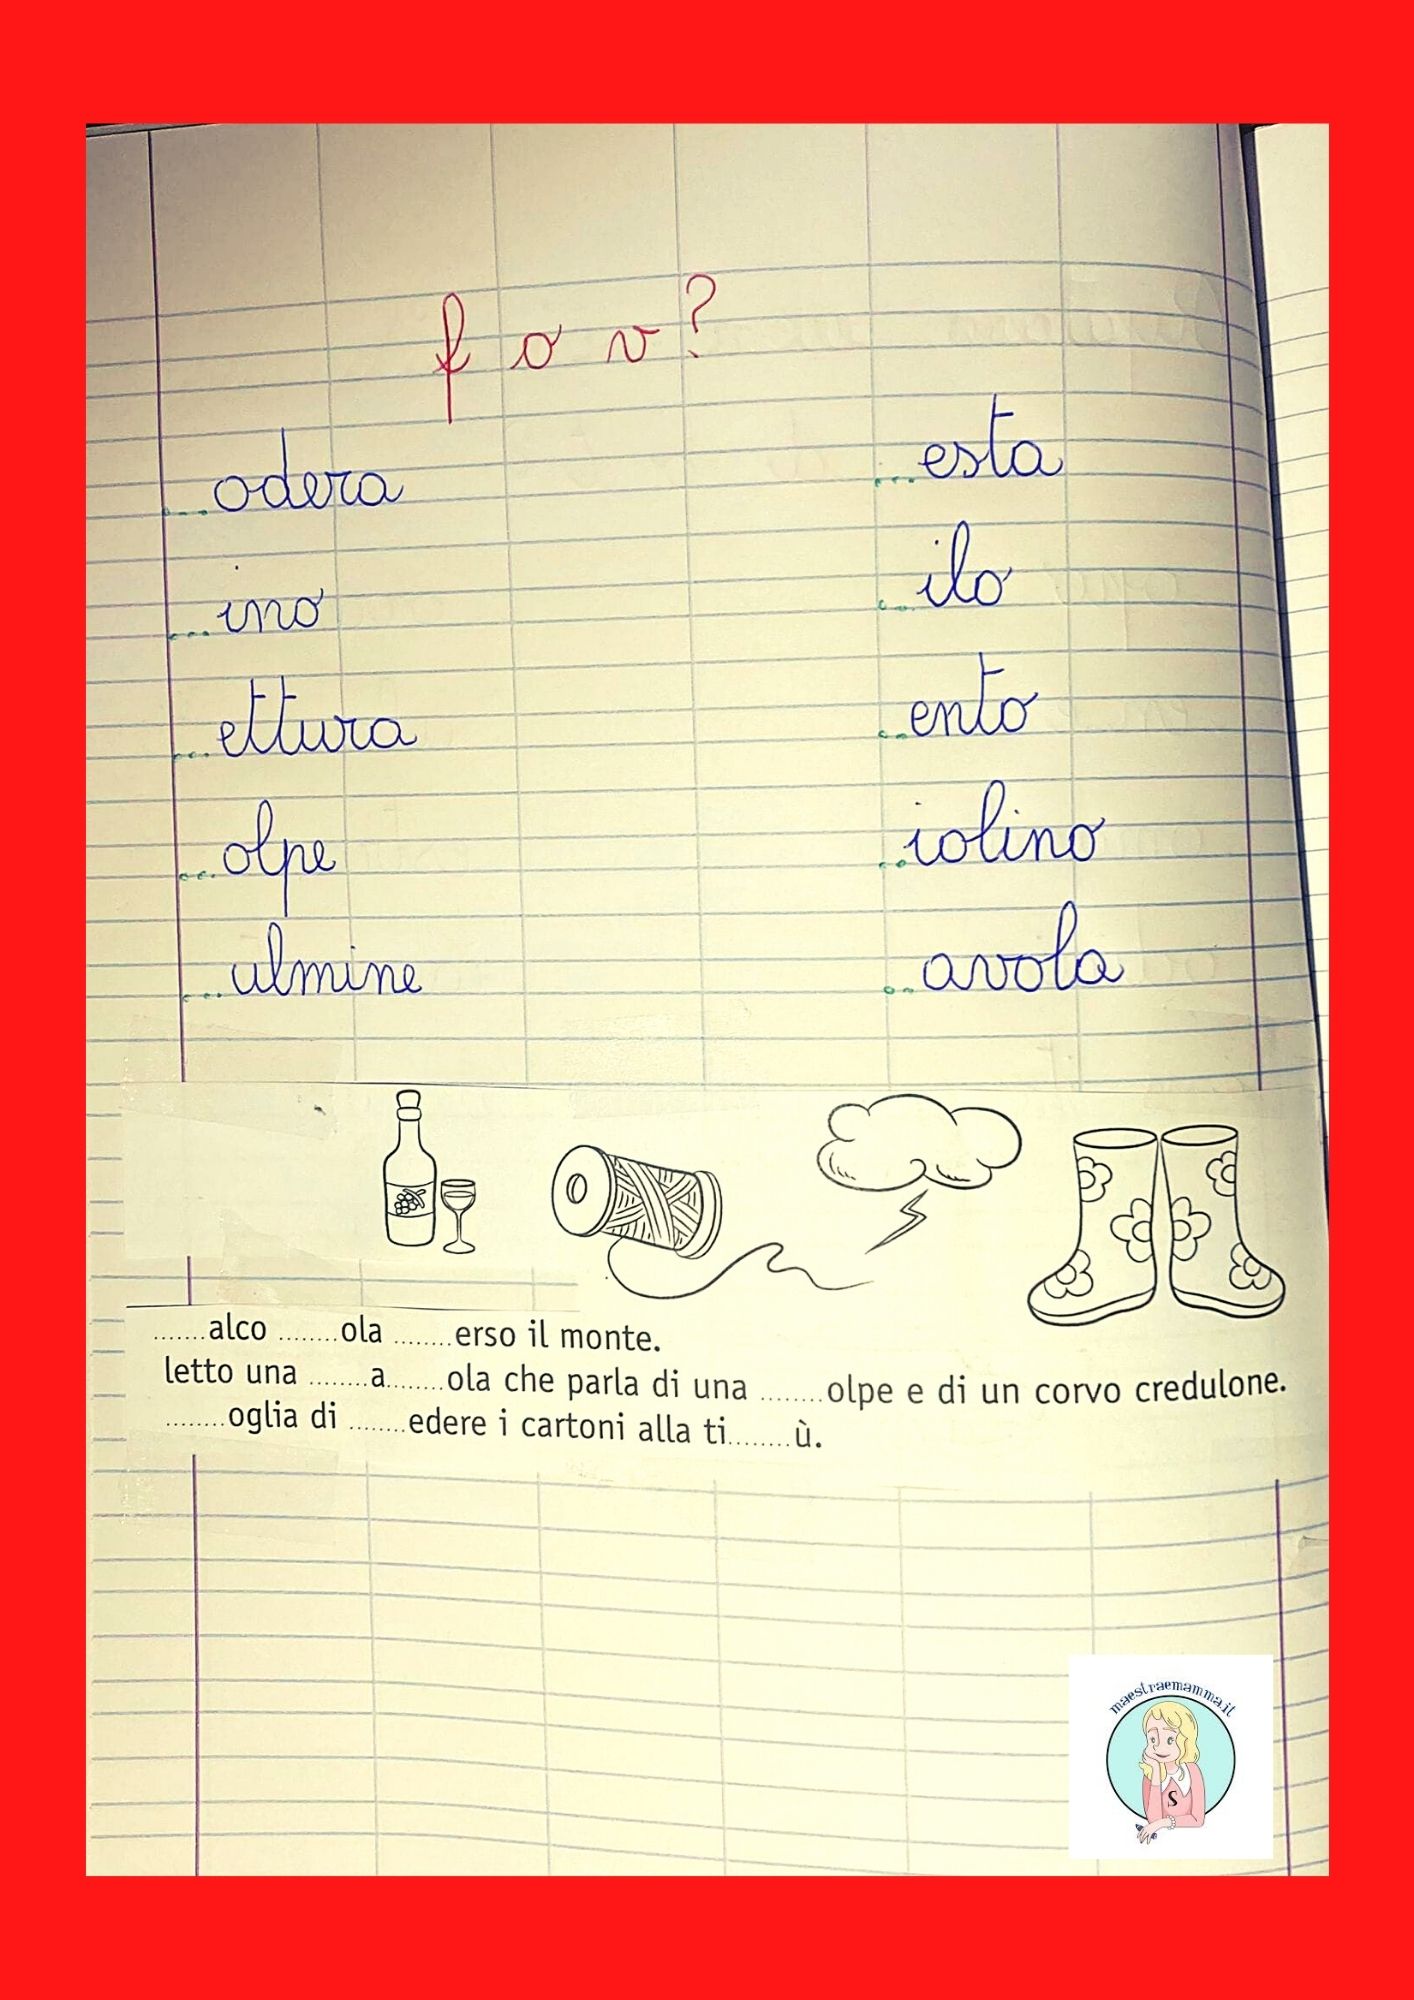 f o v?
...odera
...esta
...ino
...ilo
...ettura
...ento
...olpe
...iolino
...ulmine
...avola
.......alco ........ola ........erso il monte.
letto una ........a........ola che parla di una ........olpe e di un corvo credulone.
........oglia di ........edere i cartoni alla ti........ù.
maestraemamma.it
S